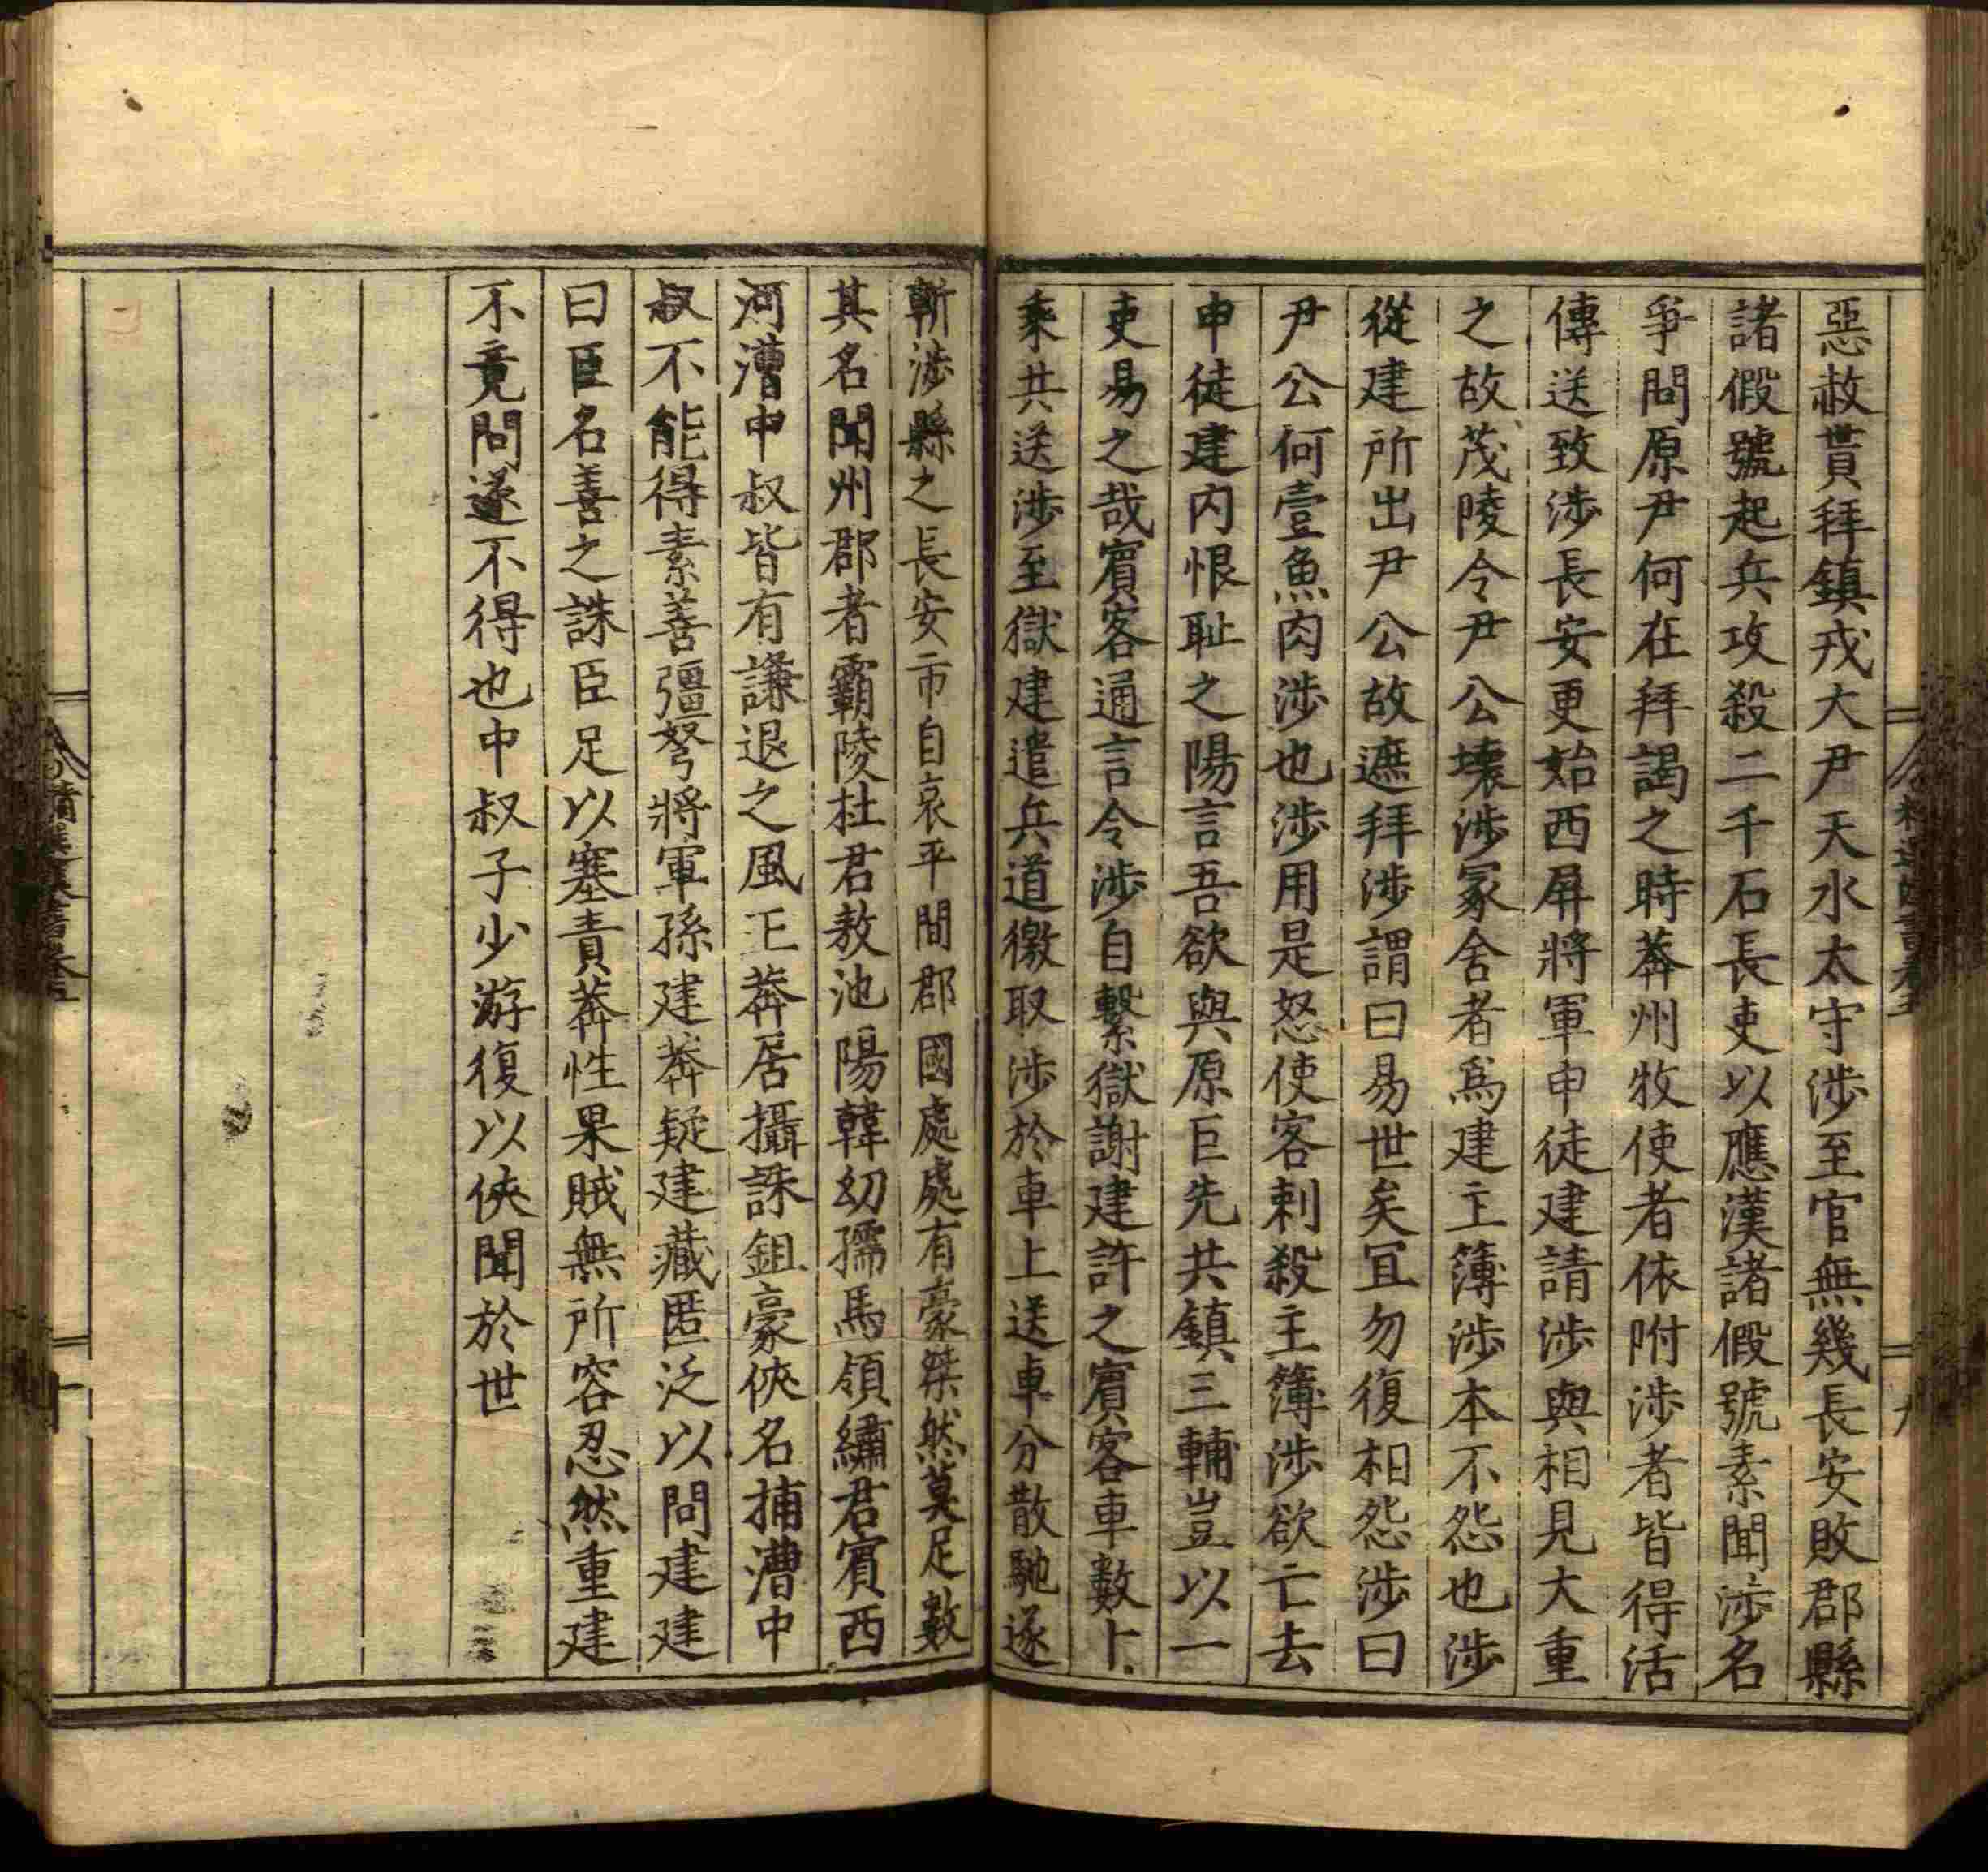 惡赦貰拜鎮戎大尹天水太守涉至官無幾長安敗郡縣
諸假號起兵攻殺二千石長吏以應漢諸假號素聞涉名
爭問原尹何在拜謁之時莽州牧使者依附涉者皆得活
傳送致涉長安更始西屏將軍申徒建請涉與相見大重
之故茂陵令尹公壞涉冢舍者爲建主簿涉本不怨也涉
從建所出尹公故遮拜涉謂曰易世矣冝勿復相怨涉曰
尹公何壹魚肉涉也涉用是怒使客刺殺主簿涉欲亡去
申徒建内恨耻之陽言吾欲與原巨先共鎮三輔豈以一
吏易之哉賓客通言令涉自繫獄謝建許之賓客車數十
乘共送涉至獄建遣兵道徼取涉於車上送車分散馳遂
斬涉縣之長安市自哀平間郡國處處有豪桀然莫足數
其名聞州郡者霸陵杜君敖池陽韓幼孺馬領繡君賓西
河漕中叔皆有謙退之風王莽居攝誅鉏豪俠名捕漕中
叔不能得素善彊弩將軍孫建莽疑建藏匿泛以問建建
曰臣名善之誅臣足以塞責莽性果賊無所容忍然重建
不竟問遂不得也中叔子少游復以俠聞於世